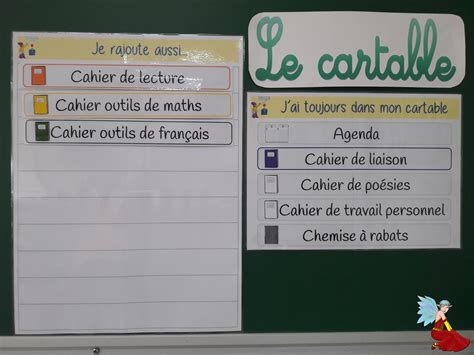 Je rajoute aussi...
Cahier de lecture
Cahier outils de maths
Cahier outils de français
Le cartable
J'ai toujours dans mon cartable
Agenda
Cahier de liaison
Cahier de poésies
Cahier de travail personnel
Chemise à rabats